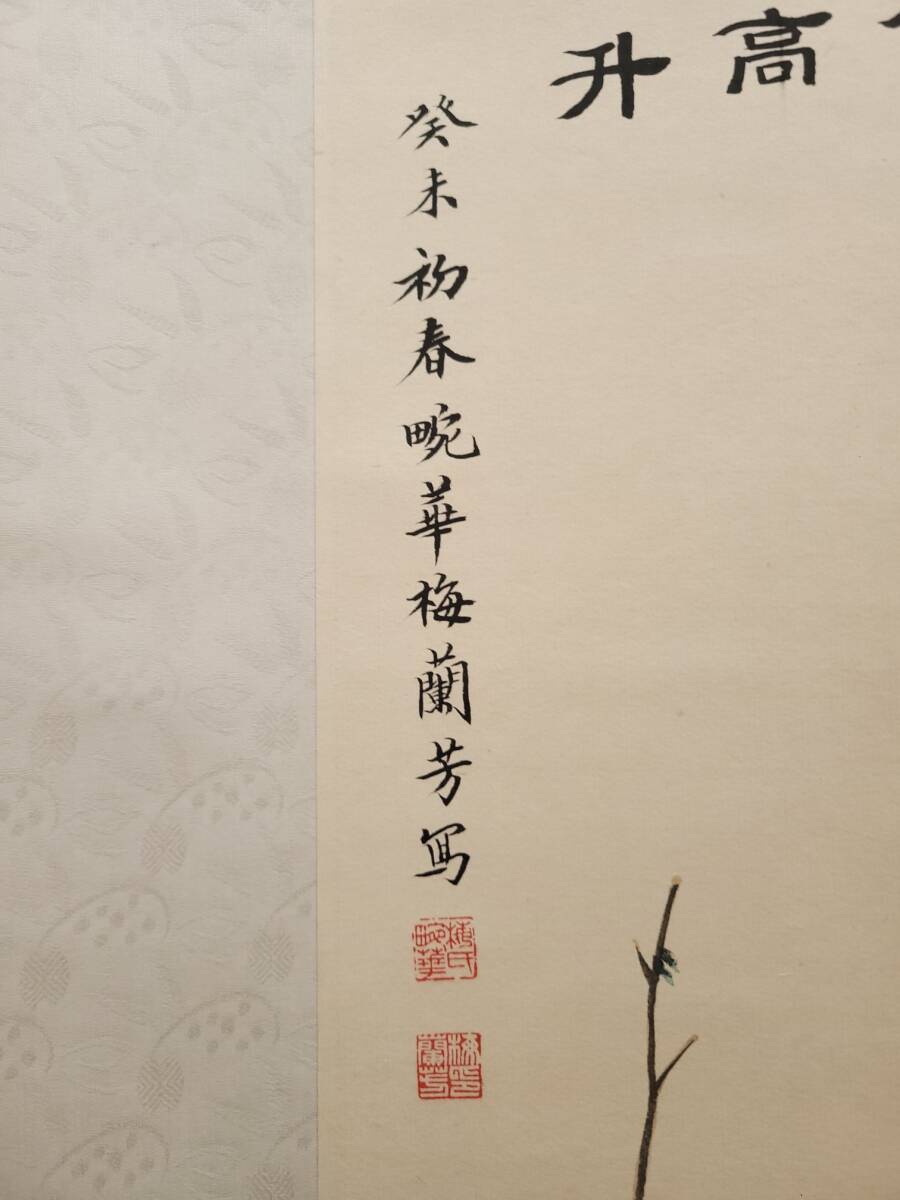 高升
癸未初春畹華梅蘭芳寫
梅氏畹華
梅蘭芳印